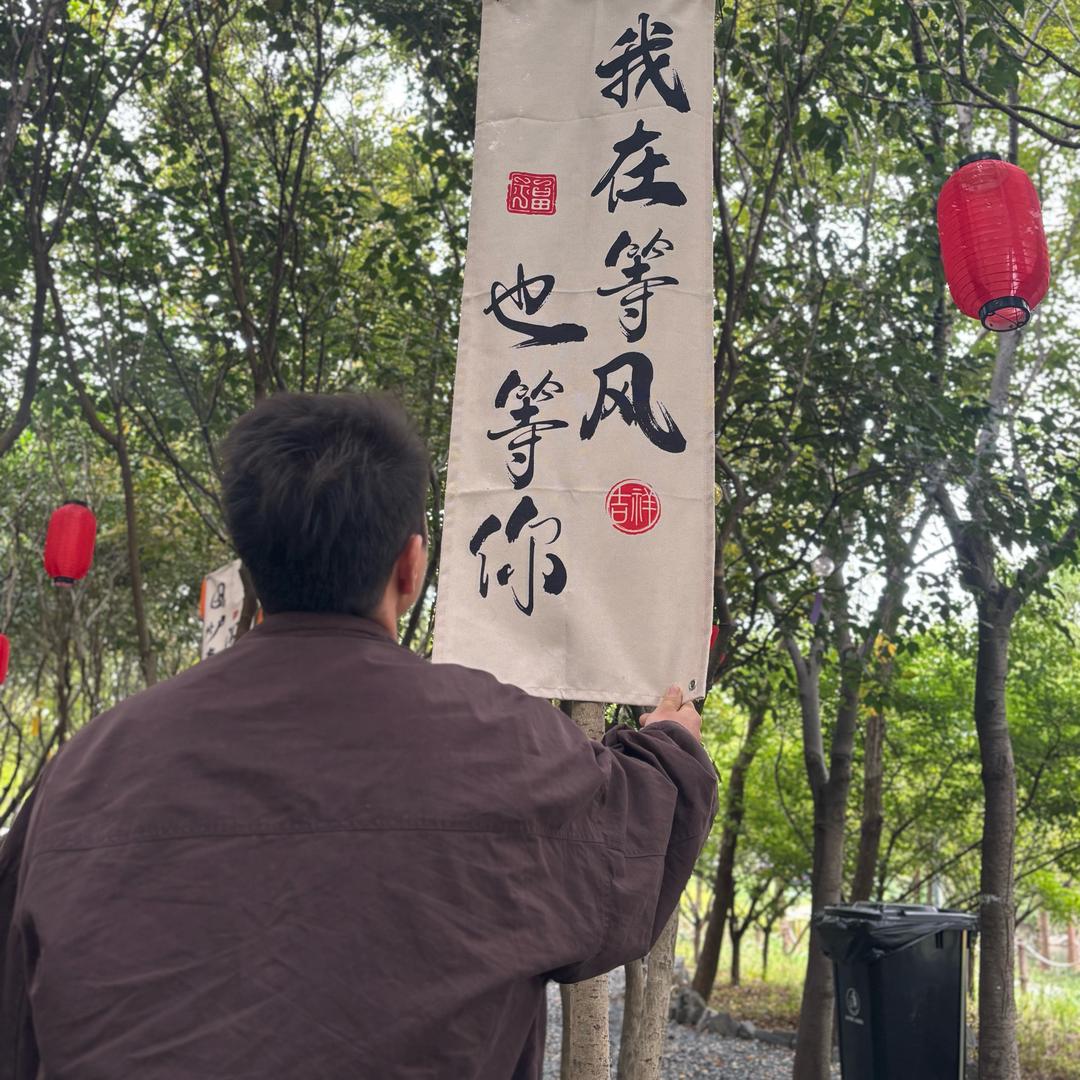 我在等风
吉祥
福
也等你